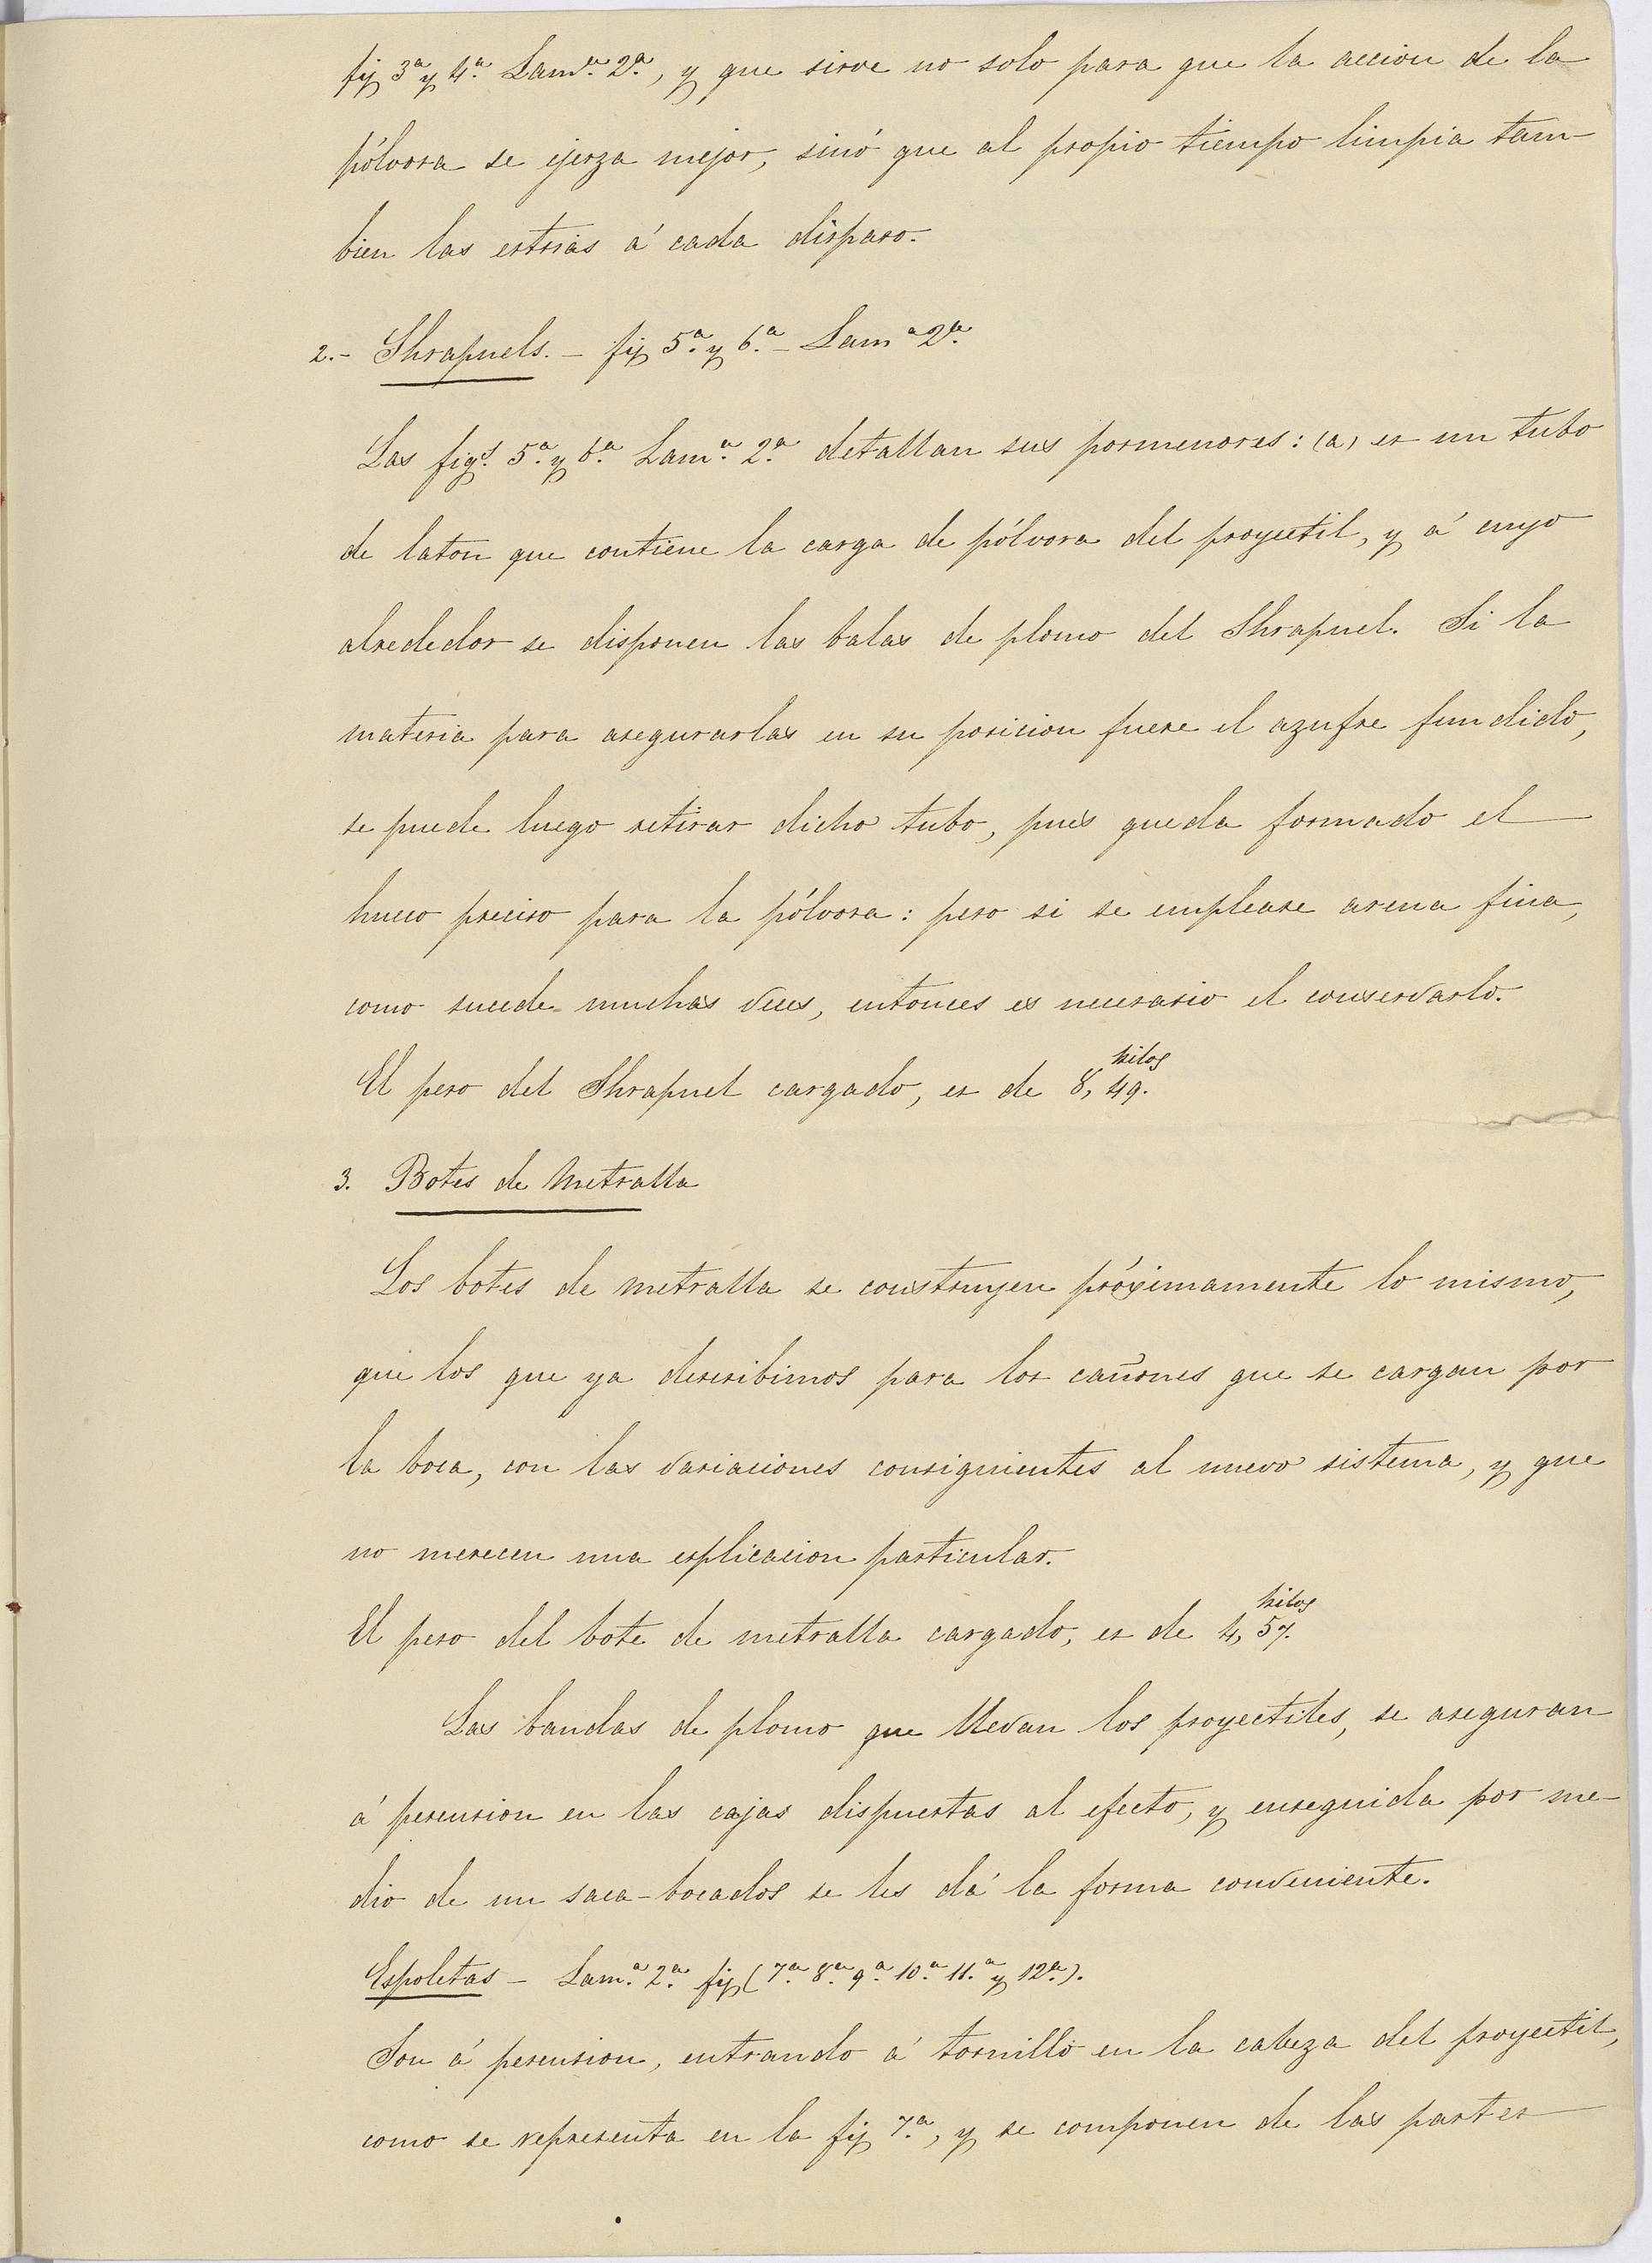 fig 3ª y 4ª Lamª 2ª, y que sirve no solo para que la accion de la
pólvora se ejerza mejor, sinó que al propio tiempo limpia tam-
bien las estrias á cada disparo.
2.- Shrapnels. - fig 5ª y 6ª - Lamª 2ª
Las figs. 5ª y 6ª Lamª 2ª detallan sus pormenores: (a) es un tubo
de laton que contiene la carga de pólvora del proyectil, y á cuyo
alrededor se disponen las balas de plomo del Shrapnel. Si la
materia para asegurarlas en su posicion fuere el azufre fundido,
se puede luego retirar dicho tubo, pues queda formado el
hueco preciso para la pólvora: pero si se emplease arena fina,
como sucede muchas veces, entonces es necesario el conservarlo.
El peso del Shrapnel cargado, es de 8, kilos 49.
3. Botes de Metralla
Los botes de metralla se construyen próximamente lo mismo,
que los que ya describimos para los cañones que se cargan por
la boca, con las variaciones consiguientes al nuevo sistema, y que
no merecen una esplicacion particular.
El peso del bote de metralla cargado, es de 4, kilos 57.
Las bandas de plomo que llevan los proyectiles, se aseguran
á percusion en las cajas dispuestas al efecto, y enseguida por me-
dio de un saca-bocados se les dá la forma conveniente.
Espoletas - Lamª 2ª fig (7ª 8ª 9ª 10ª 11ª y 12ª).
Son á percusion, entrando á tornillo en la cabeza del proyectil,
como se representa en la fig 7ª, y se componen de las partes